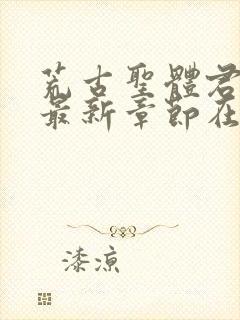 荒古聖體君
最新章節在
漆涼